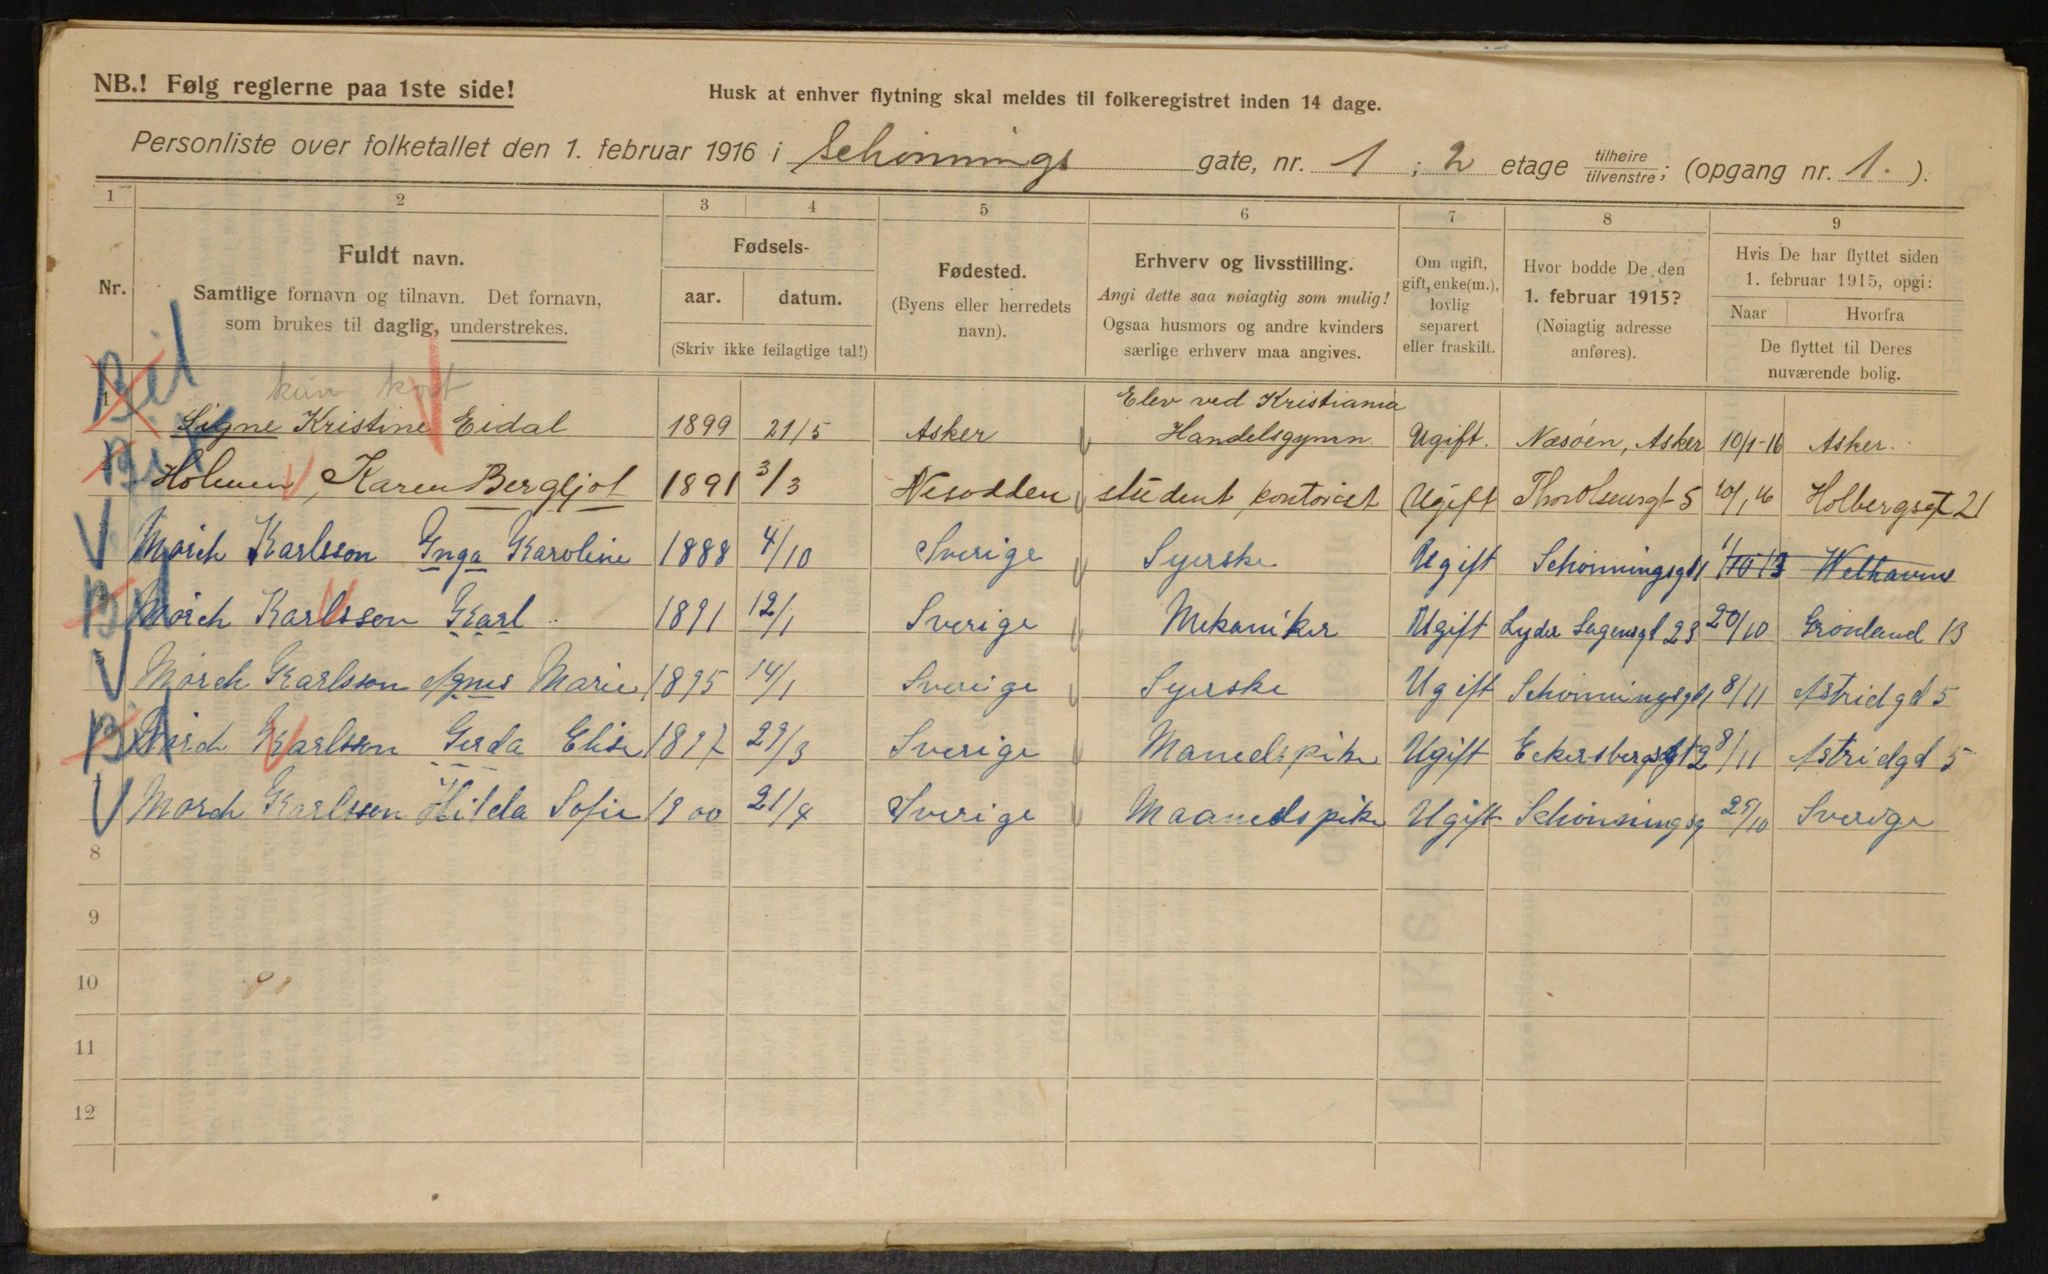 NB.! Følg reglerne paa 1ste side!
Husk at enhver flytning skal meldes til folkeregistret inden 14 dage.
Personliste over folketallet den 1. februar 1916 i Schønnings gate, nr. 1 ; 2 etage tilhøire tilvenstre; (opgang nr. 1. ).
1 2 3 4 5 6 7 8 9
Nr.
Fuldt navn.
Samtlige fornavn og tilnavn. Det fornavn,
som brukes til daglig, understrekes.
Fødsels-
aar. datum.
(Skriv ikke feilagtige tal!)
Fødested.
(Byens eller herredets
navn).
Erhverv og livsstilling.
Angi dette saa nøiagtig som mulig!
Ogsaa husmors og andre kvinders
særlige erhverv maa angives.
Om ugift,
gift, enke(m.),
lovlig
separert
eller fraskilt.
Hvor bodde De den
1. februar 1915?
(Nøiagtig adresse
anføres).
Hvis De har flyttet siden
1. februar 1915, opgi:
Naar Hvorfra
De flyttet til Deres
nuværende bolig.
kun kort
1 Signe Kristine Eidal 1899 21/5 Asker Elev ved Kristiania Handelsgymn. Ugift. Næsøen, Asker 10/1-16 Asker.
Holmen, Karen Bergljot 1891 3/3 Nesodden student, kontorist Ugift Thv Olsensgt 5 10/1 16 Holbergsgt 21
Mörch Karlsson Inga Karoline 1888 4/10 Sverige Syerske Ugift Schönningsgt 1 11/10 13 Welhavns
Mörch Karlsson Karl 1891 12/1 Sverige Mekaniker Ugift Lyder Sagensgt 23 20/10 Grönland 13
Mörch Karlsson Agnes Marie 1895 14/1 Sverige Syerske Ugift Schönningsgt 1 8/11 Astridgd 5
Mörch Karlsson Gerda Elise 1897 29/3 Sverige Manedspike Ugift Eckersbergsgt 12 8/11 Astridgd 5
Mörch Karlsson Hilda Sofie 1900 21/4 Sverige Maanedspike Ugift Schönningsg 25/10 Sverige
8
9
10
11
12